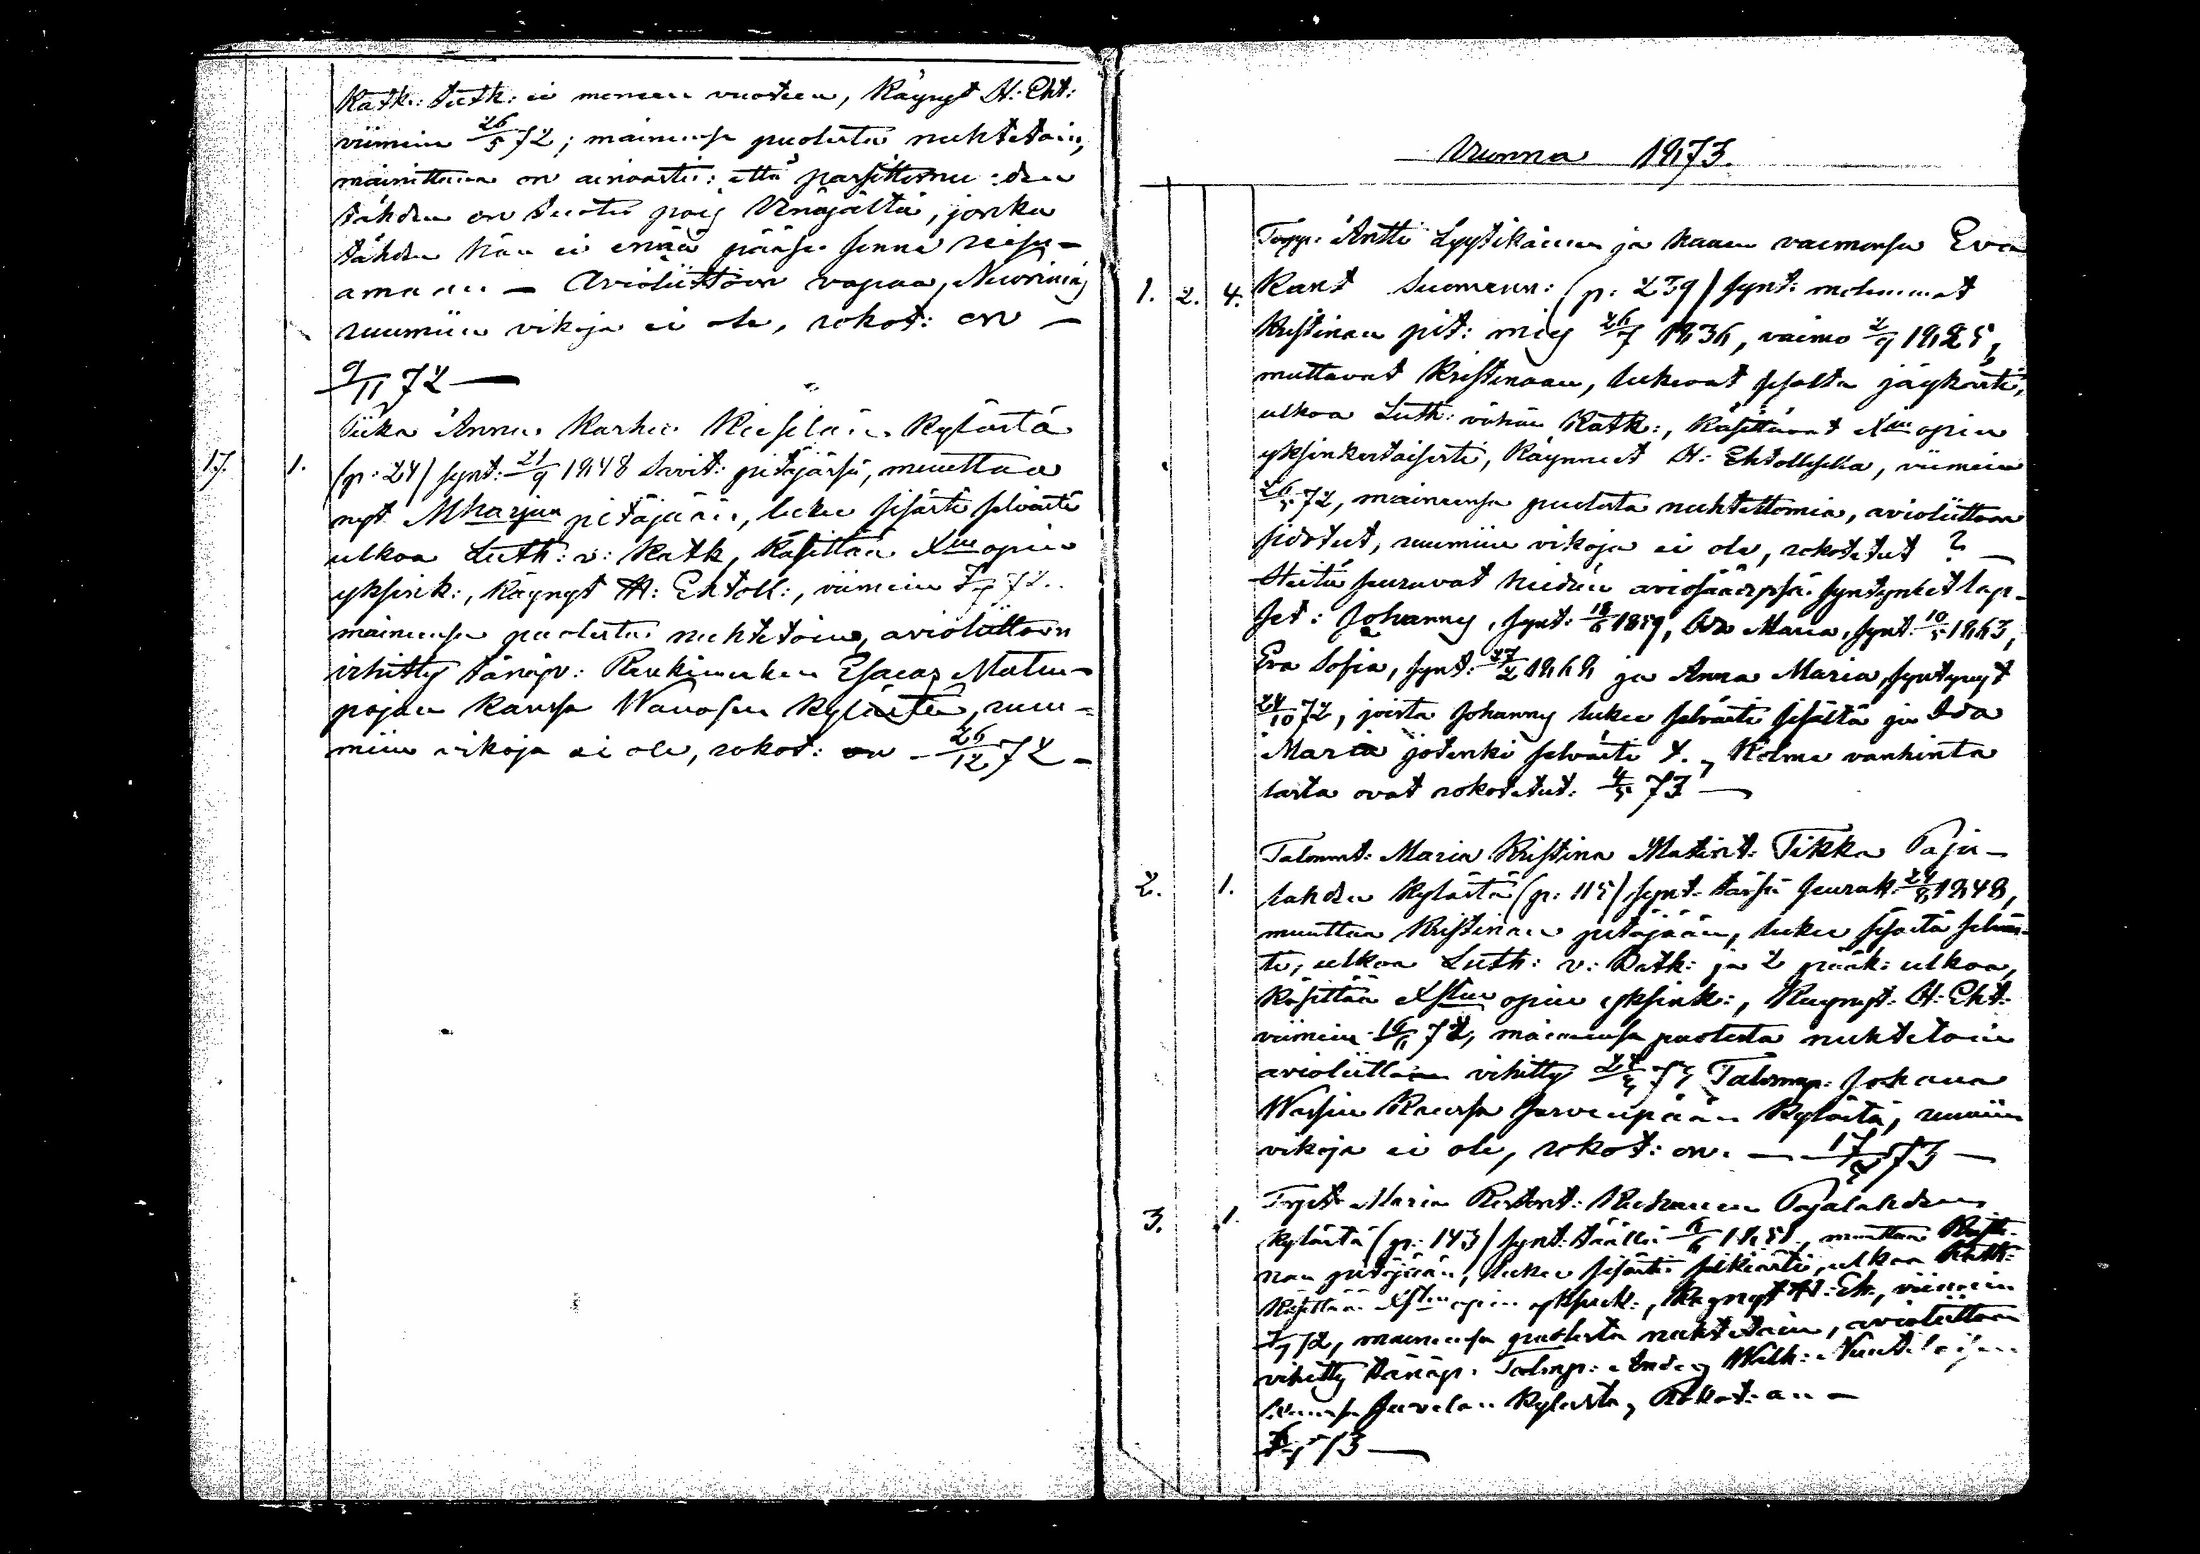 Katk: tutk: ei menneen vuoteen, Käynyt H: Eht:
viimein 26/5 72; maineensa puolesta nuhtetoin,
mainittava on ainoasti: että passittomuuden
tähden on tuotu pois Venäjältä, jonka
tähden hän ei enää pääse sinne reisu-
amaan — Avioliittoon vapaa,
ruumiin vikoja ei ole, rokot: on —
9/11 72 —
Piika Anna Karhu kylästä
17. 1. (p: 24) synt: 21/9 1848 Savit: pitäjässä, muuttaa
nyt Mharjun pitäjään, lukee sisältä selvästi
ulkoa Luth: v: Katk, Käsittää Xin opin
yksink:, Käynyt H: Ehtoll:, viimein 7/7 72.
maineensa puolesta nuhtetoin, avioliittoon
vihitty tänäpv: Renkimiehen Esaias Matin-
pojan kanssa kylästä, ruu-
miin vikoja ei ole, rokot: on — 26/12 72 —
Vuonna 1873.
Antti Lyytikäinen ja hänen vaimonsa Eva
1. 2. 4. Kant Suomenn: (p: 239) synt: molemmat
Kristinan pit: mies 26/7 1836, vaimo 2/9 1825,
muttavat Kristinaan, lukevat sisältä jäykästi,
ulkoa Luth: vähän Katk:, Käsittävät Xin opin
yksinkertaisesti, Käynneet H: Ehtollisella, viimein
26/5 72, maineensa puolesta nuhtettomia, avioliittoon
sidotut, ruumiin vikoja ei ole, rokotetut ? —
Heitä seuravat heidän aviosäädyssä syntyneet lap-
set: Johannes, synt: 18/6 1859, Ida Maria, synt: 10/5 1863,
Eva Sofia, synt: 27/2 1868 ja Anna Maria, syntynyt
24/10 72, joista Johannes lukee selvästi sisältä ja Ida
Maria jotenki selvästi s., Kolme vanhinta
lasta ovat rokotetut. 4/5 73 —
Talonot: Maria Kristina Matint: Tikka Paju-
2. 1. lahden kylästä (p: 115) synt. tässä seurak: 24/8 1848,
muuttaa Kristinan pitäjään, lukee sisältä selväs-
ti, ulkoa Luth: v: Katk: ja 2 pääk: ulkoa,
Käsittää Xstin opin yksink:, Käynyt: H: Eht:
viimein 16/6 72, maineensa puolesta nuhtetoin
avioliittoon vihitty Talonp: Johana
kanssa kylästä, ruumiin
vikoja ei ole, rokot: on. — 17/5 73 —
3. 1. Maria Pajulahden
kylästä (p: 143) synt: täällä muuttaa Kristi-
nan pitäjään, lukee sisältä selkiästi, ulkoa Katk:
Käsittää Xstin opin yksink:, Käynyt H: Eh:, viimein
7/7 72, maineensa puolesta nuhtetoin, avioliittoon
vihitty tänäp: Talonp:
kanssa kylästä, Rokot: on —
73 —